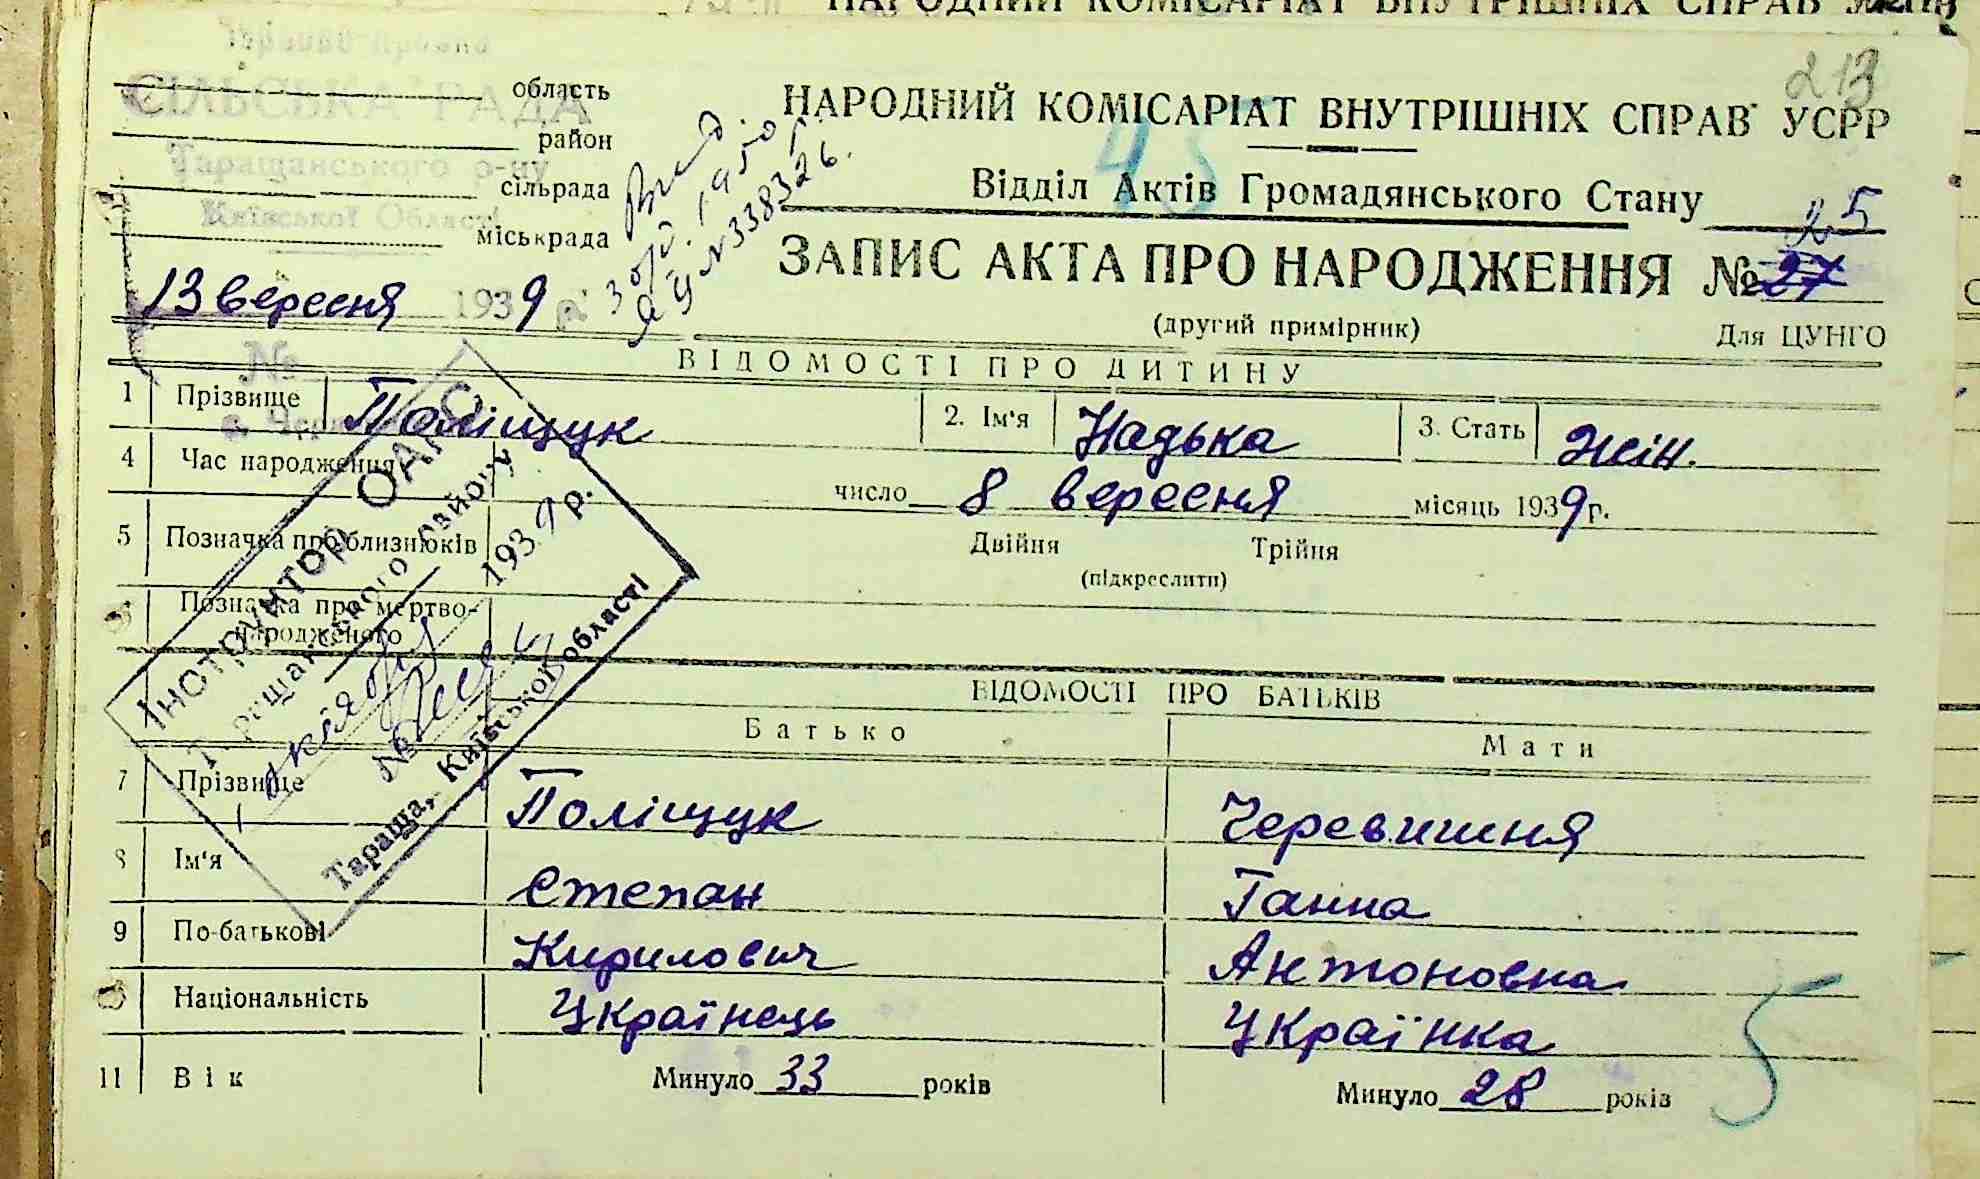 НАРОДНИЙ КОМІСАРІАТ ВНУТРІШНІХ СПРАВ
213
СІЛЬСЬКА РАДА
Таращанського р-ну
Київської Області
область
район
сільрада
міськрада
13 вересня 1939 р.
1950 р.
№ 338326.
НАРОДНИЙ КОМІСАРІАТ ВНУТРІШНІХ СПРАВ УСРР
45
Відділ Актів Громадянського Стану
25
ЗАПИС АКТА ПРО НАРОДЖЕННЯ № 27
(другий примірник) Для ЦУНГО
ВІДОМОСТІ ПРО ДИТИНУ
№
1 Прізвище Поліщук 2. Ім'я Надька 3. Стать Жін.
4 Час народження число 8 вересня місяць 1939 р.
5 Позначка про близнюків Двійня Трійня
(підкреслити)
6 Позначка про мертво-
народженого
Інструктор ОАГС
Таращанського району
1939 р.
№
Тараща, Київської області
ВІДОМОСТІ ПРО БАТЬКІВ
Батько Мати
7 Прізвище Поліщук Черевишня
8 Ім'я Степан Ганна
9 По-батькові Кирилович Антоновна
Національність Українець Українка
11 Вік Минуло 33 років Минуло 28 років
5